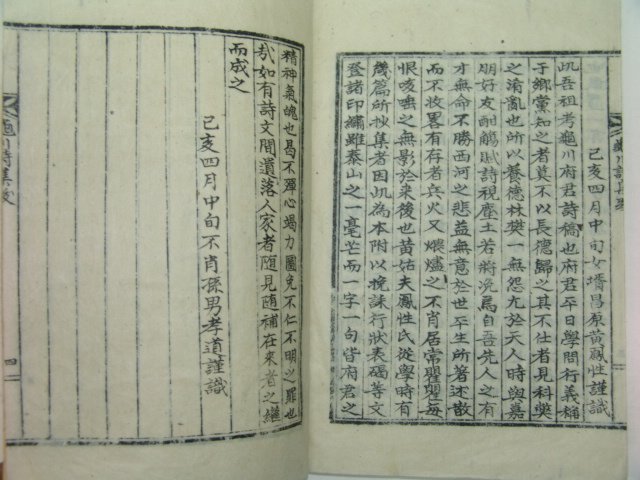 己亥四月中旬女壻昌原黃鳳性謹識
此吾祖考龜川府君詩稿也府君平日學問行義稱
于鄉黨知之者莫不以長德歸之其不仕者見科獘
之淆亂也所以養德林樊一無怨尤於天人時與嘉
朋好友酣觴賦詩視塵土若將浼焉自吾先人之有
才無命不勝西河之悲益無意於世平生所著述散
而不收畧有存者兵火又煨燼之不肖居常瞿瞿每
恨咳唾之無影於來後也黃姑夫鳳性氏從學時有
歲篇所抄集者因此為本附以挽誄行狀表碣等文
登諸印繡雖泰山之一毫芒而一字一句皆府君之
精神氣魄也曷不殫心竭力圖免不仁不明之罪也
哉如有詩文間遺落人家者隨見隨補在來者之繼
而成之
己亥四月中旬不肖孫男孝道謹識
龜川詩集跋
四